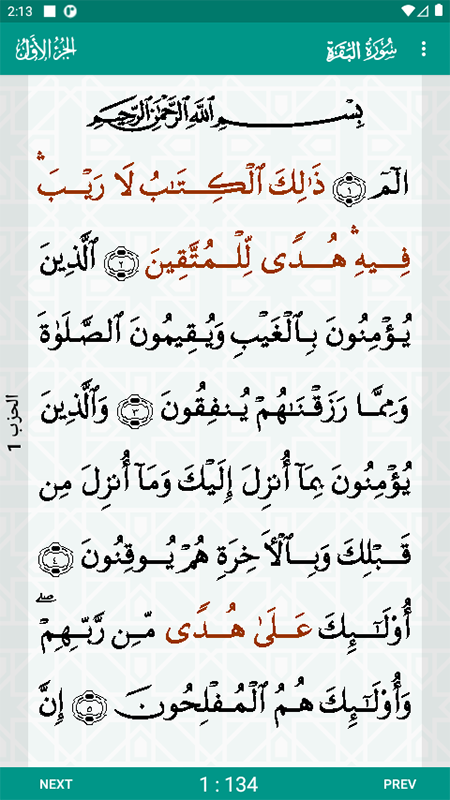 2:13
سُورَةُ البَقَرَةِ الجُزْءُ الأَوَّلُ
بِسْمِ ٱللَّهِ ٱلرَّحْمَٰنِ ٱلرَّحِيمِ
الٓمٓ ١ ذَٰلِكَ ٱلْكِتَٰبُ لَا رَيْبَ ۛ
فِيهِ ۛ هُدًى لِّلْمُتَّقِينَ ٢ ٱلَّذِينَ
يُؤْمِنُونَ بِٱلْغَيْبِ وَيُقِيمُونَ ٱلصَّلَوٰةَ
وَمِمَّا رَزَقْنَٰهُمْ يُنفِقُونَ ٣ وَٱلَّذِينَ
يُؤْمِنُونَ بِمَآ أُنزِلَ إِلَيْكَ وَمَآ أُنزِلَ مِن
قَبْلِكَ وَبِٱلْأَخِرَةِ هُمْ يُوقِنُونَ ٤
أُو۟لَٰٓئِكَ عَلَىٰ هُدًى مِّن رَّبِّهِمْ ۖ
وَأُو۟لَٰٓئِكَ هُمُ ٱلْمُفْلِحُونَ ٥ إِنَّ
الحزب 1
NEXT 1 : 134 PREV